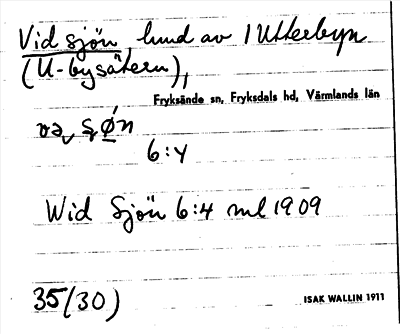 Vid sjön hmd av 1 Utterbyn
(U-bysätern),
Fryksände sn, Fryksdals hd, Värmlands län
6:4
Wid Sjön 6:4 ml 1909
35(30)
ISAK WALLIN 1911